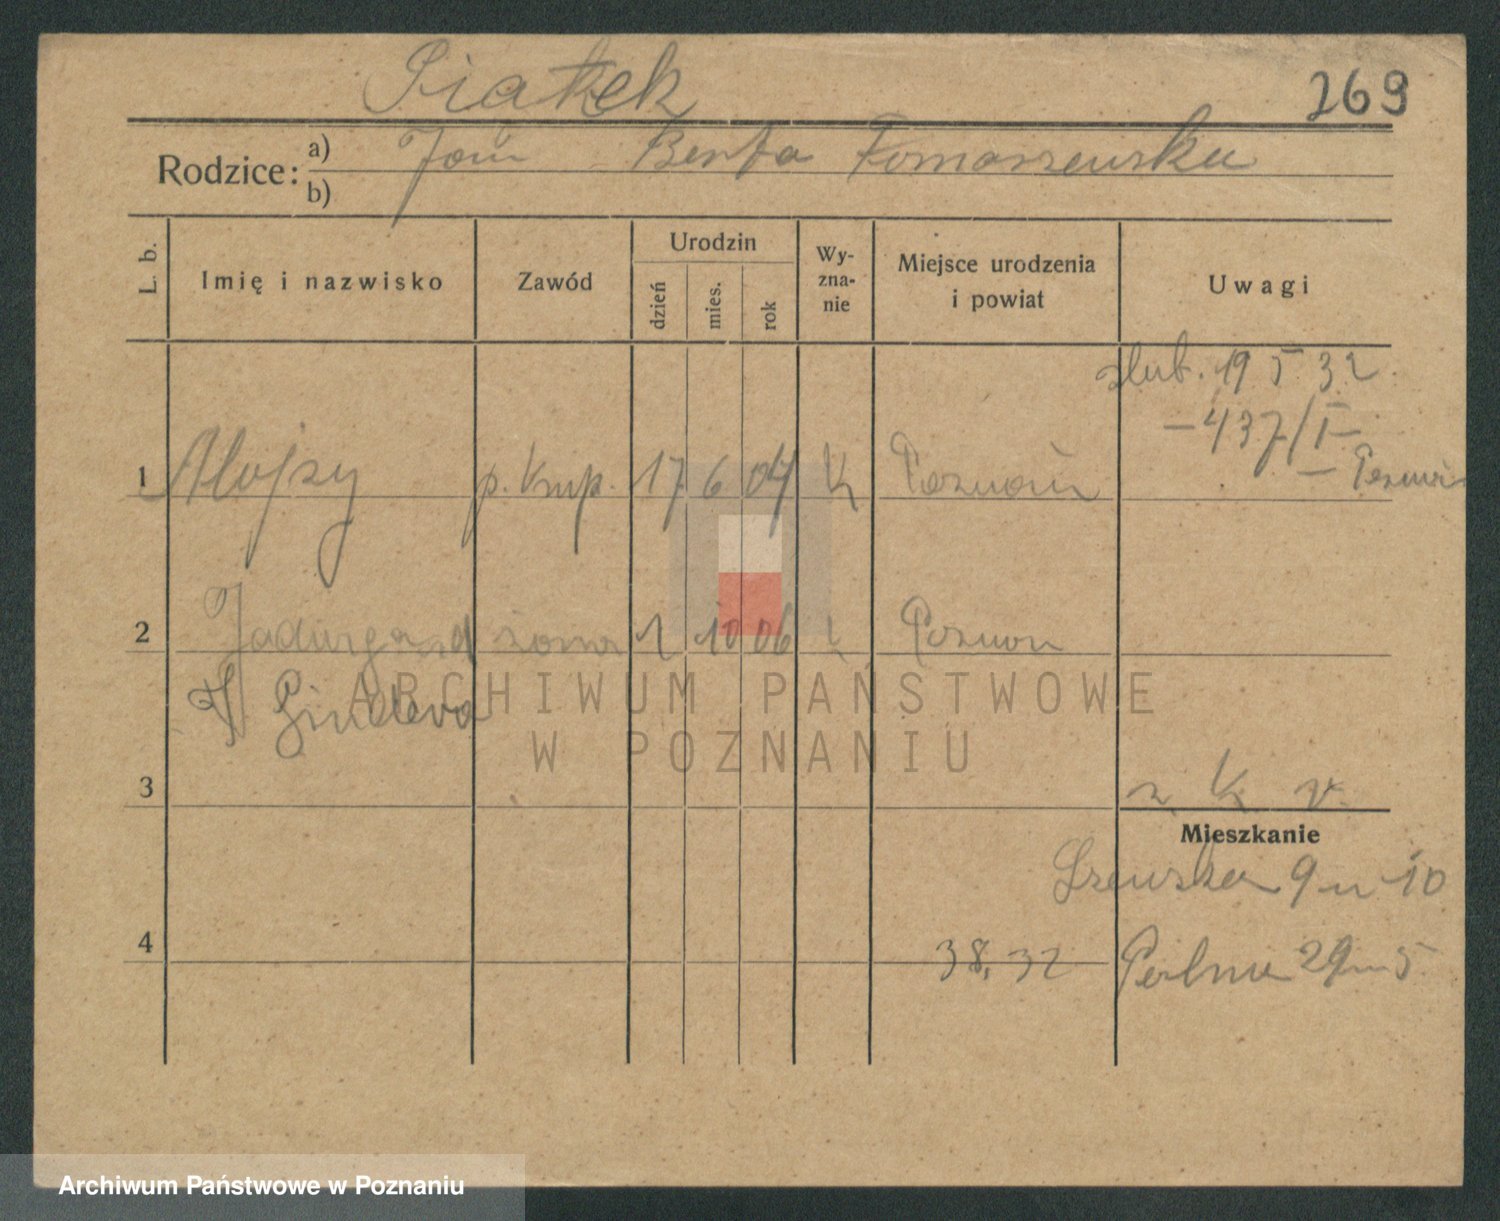 Piątek
269
Rodzice: a) Jan Berta Tomaszewska
b)
L. b.
Imię i nazwisko
Zawód
Urodzin
dzień
mies.
rok
Wy-
zna-
nie
Miejsce urodzenia
i powiat
Uwagi
ślub. 19 5 32
– 437/I –
– Poznań
1 Alojzy p. kup. 17 6 04 k Poznań
2 żona 1 10 06 k Poznań
3
z k v.
Mieszkanie
Szewska 9 m 10
4
38, 32
29 m 5
ARCHIWUM PAŃSTWOWE
W POZNANIU
Archiwum Państwowe w Poznaniu